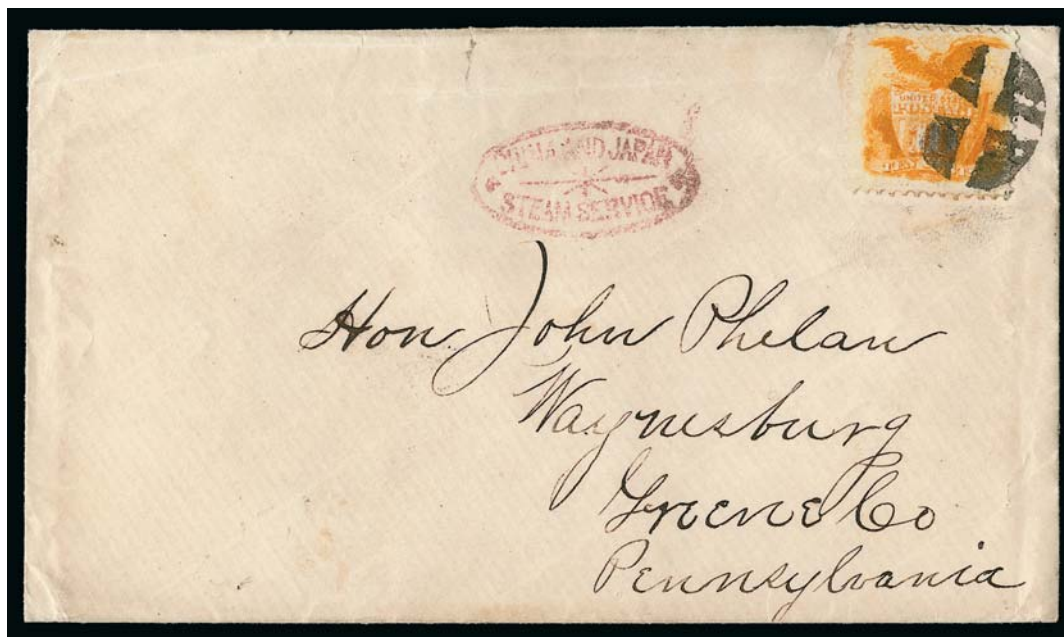 CHINA AND JAPAN
STEAM SERVICE
UNITED
POSTAGE
TEN
Hon John Phelan
Waynesburg
Greene Co
Pennsylvania